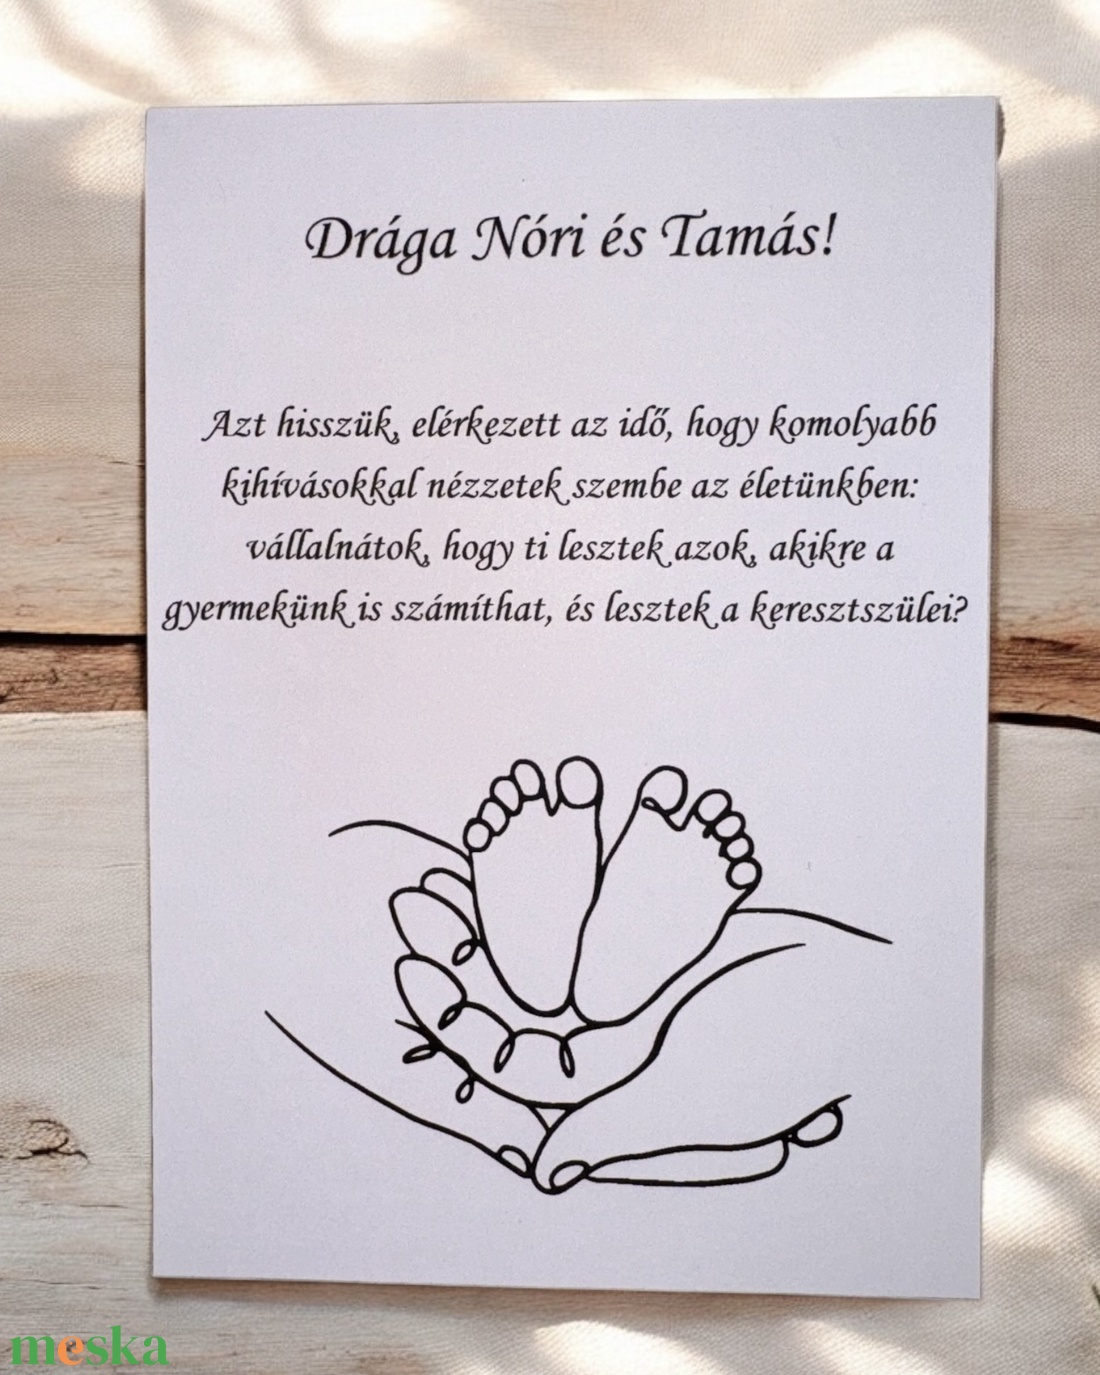 Drága Nóri és Tamás!
Azt hisszük, elérkezett az idő, hogy komolyabb
kihívásokkal nézzetek szembe az életünkben:
vállalnátok, hogy ti lesztek azok, akikre a
gyermekünk is számíthat, és lesztek a keresztszülei?
meska